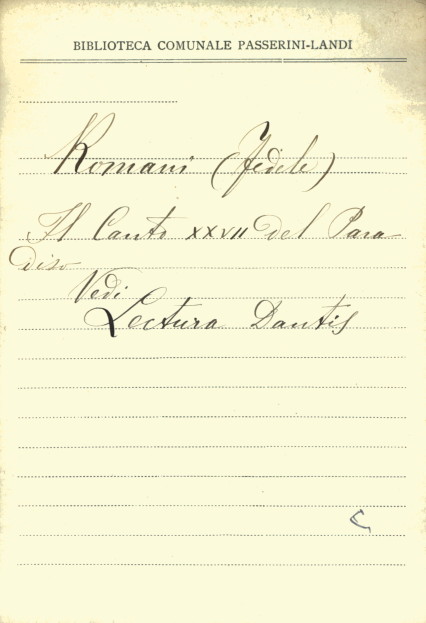 BIBLIOTECA COMUNALE PASSERINI-LANDI
Romani (Fedele)
Il Canto XXVII del Para
diso
Vedi
Lectura Dantis